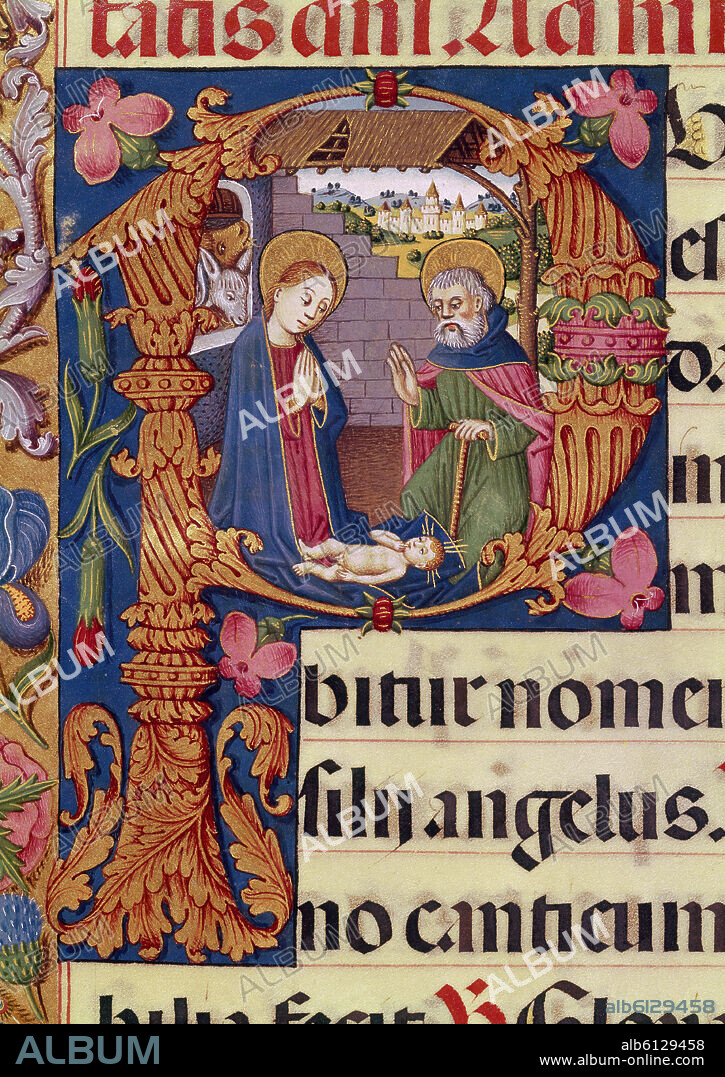 tatis dni. Ad mi
P
el
da
in
m
bitur nomen
filij angelus.
no canticum
bilia fecit. R Glori
alb6129458
ALBUM
alb6129458
www.album-online.com